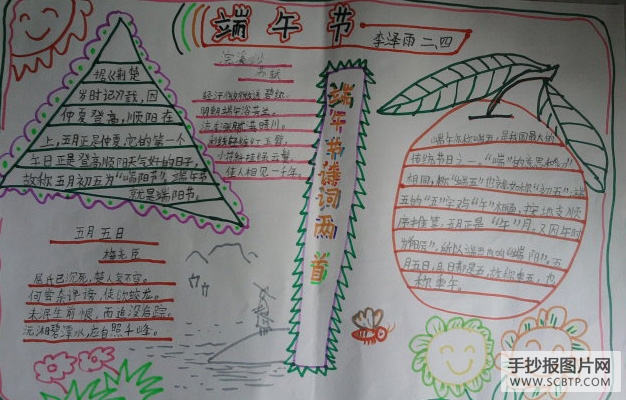 端午节
李泽雨 二、四
据《荆楚
岁时记》载,因
仲夏登高,顺阳在
上,五月正是仲夏,它的第一个
午日正是登高顺阳天气好的日子,
故称五月初五为"端阳节"。端午节
就是端阳节。
浣溪沙
苏轼
明朝端午浴芳兰
流香涨腻满晴川
彩线轻缠红玉臂
小符斜挂绿云鬟
佳人相见一千年。
端午节诗词两首
五月五日
梅尧臣
屈氏已沉死,楚人哀不容。
何尝奈谗谤,徒欲却蛟龙。
未泯生前恨,而追没后踪。
沅湘碧潭水,应自照千峰。
端午亦称端五,是我国最大的
传统节日之一,"端"的意思和"初"
相同,称"端五"也就如称"初五";端
五的"五"字与"午"相通,按地支顺
序推算,五月正是"午"月。又因午时
为"阳辰",所以端五也叫"端阳"。五
月五日,月日都是五,故称重五,也
称重午。
手抄报图片网
WWW.SCBTP.COM